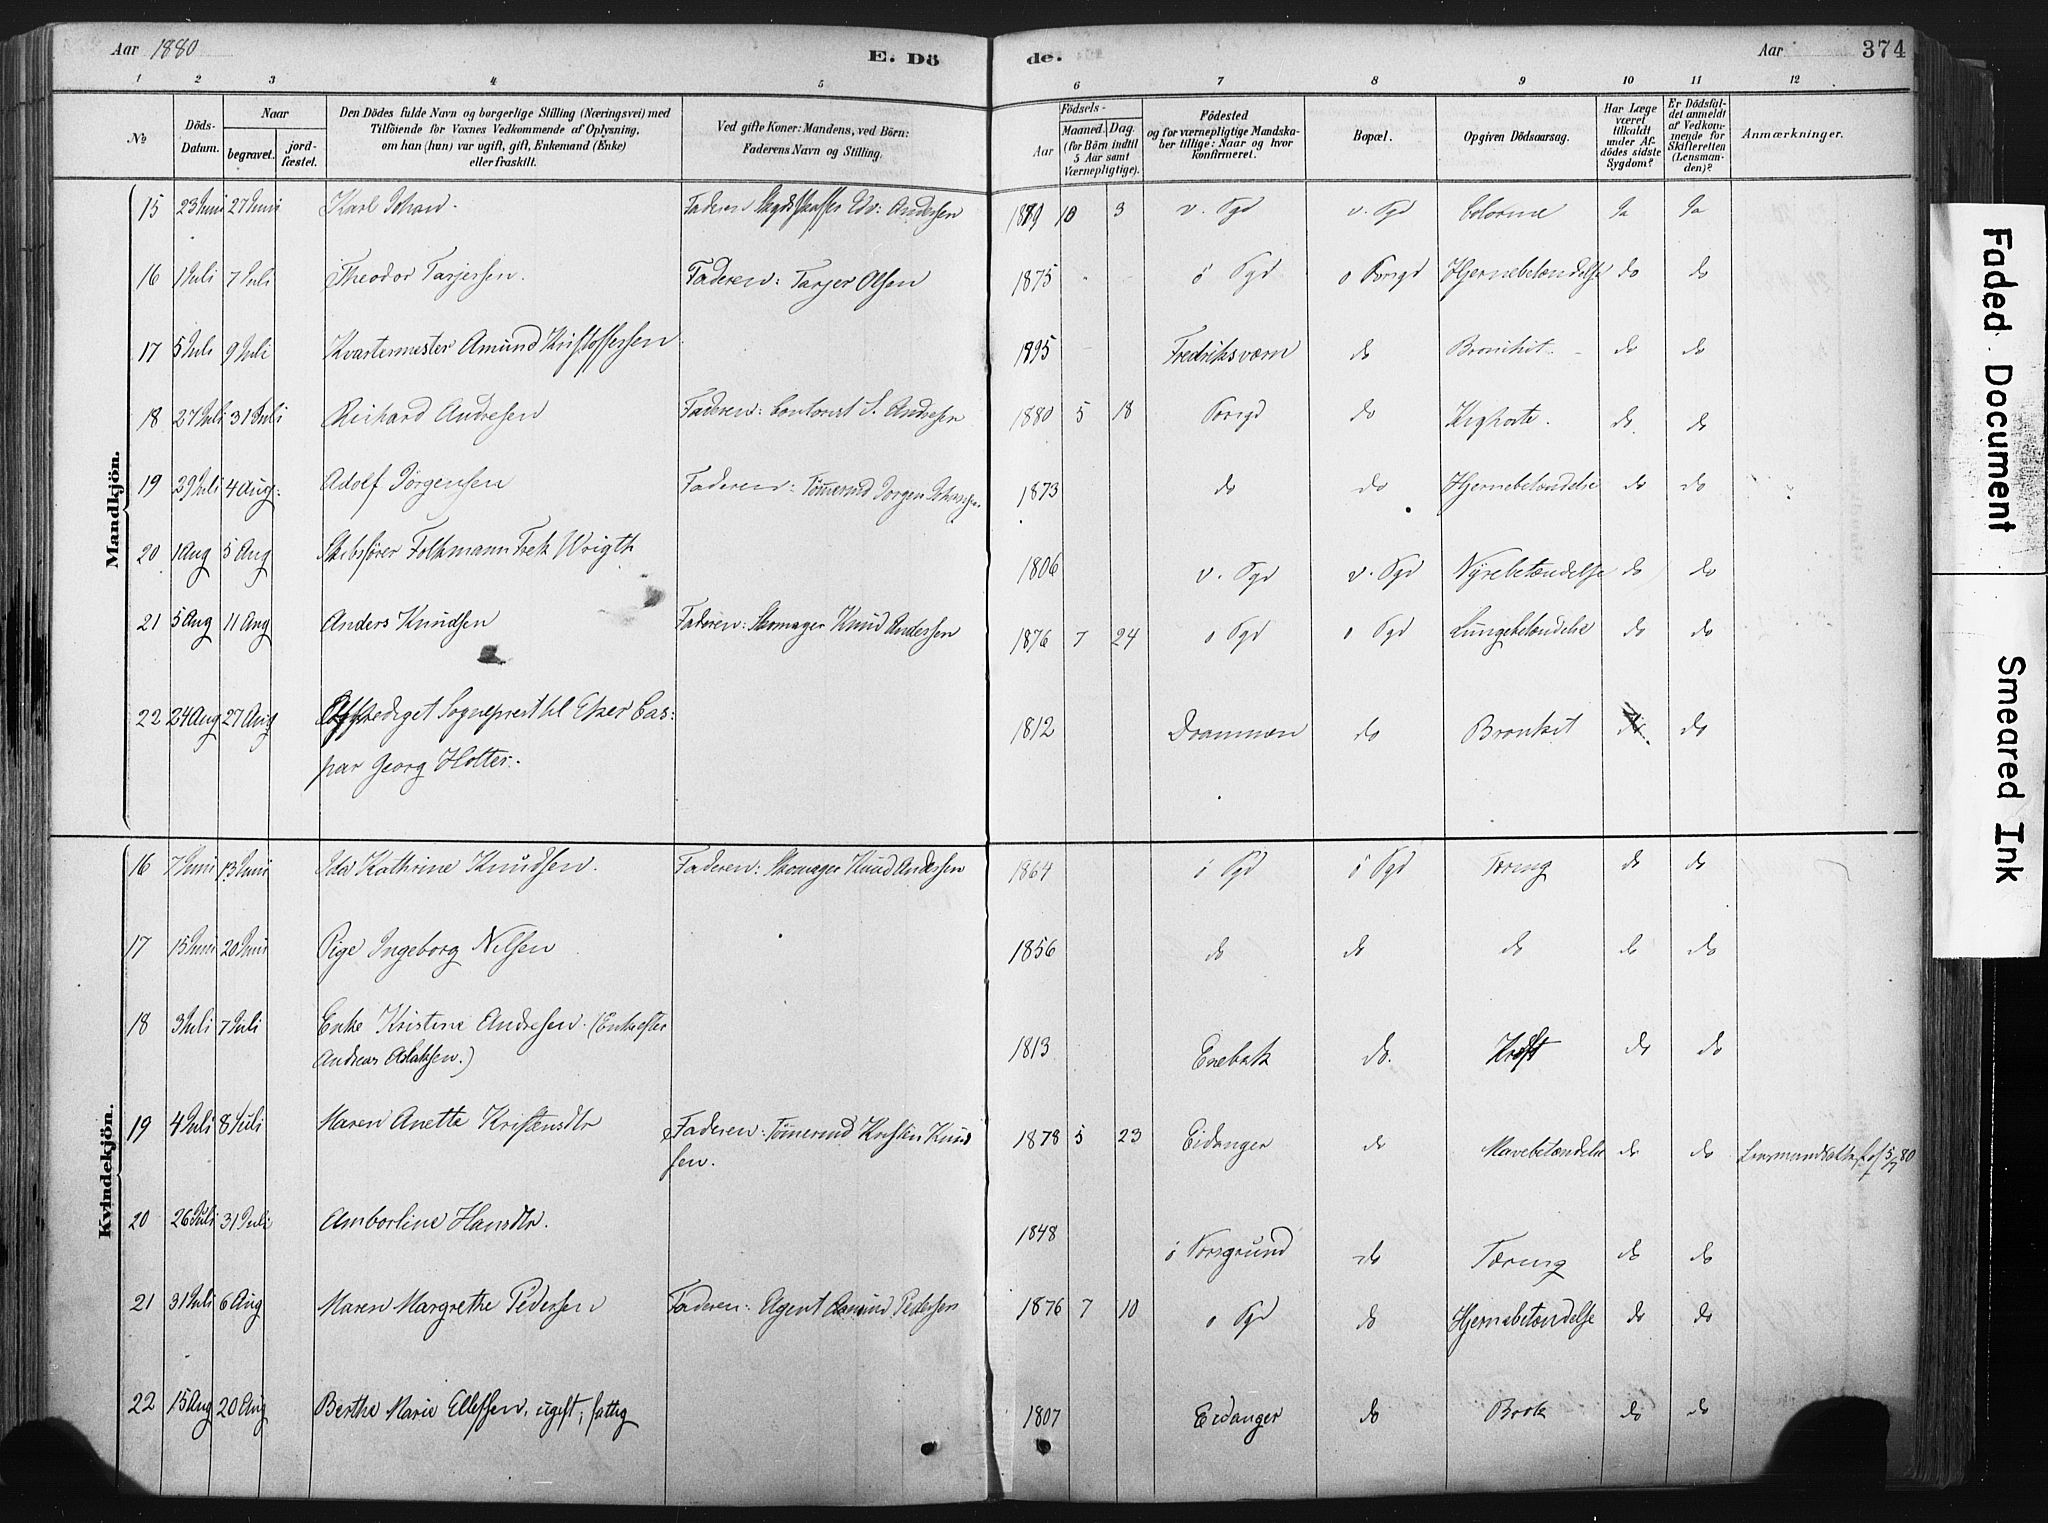 Aar 1880 E. Dö de. Aar 374
1 2 3 4 5 6 7 8 9 10 11 12
№ Döds-Datum. Naar begravet. jordfæstet. Den Dödes fulde Navn og borgerlige Stilling (Næringsvei) med Tilföiende for Voxnes Vedkommende af Oplysning, om han (hun) var ugift, gift, Enkemand (Enke) eller fraskilt. Ved gifte Koner: Mandens, ved Börn: Faderens Navn og Stilling. Födsels- Aar Maaned. Dag. (for Börn indtil 5 Aar samt Værnepligtige). Födested og for værnepligtige Mandskaber tillige: Naar og hvor konfirmeret. Bopæl. Opgiven Dödsaarsag. Har Læge været tilkaldt under Afdödes sidste Sygdom? Er Dödsfaldet anmeldt af Vedkommende for Skifteretten (Lensmanden)? Anmærkninger.
Mandkjön.
15 23 Juni 27 Juni Karl Johan. Faderen Skydsskaffer Edv: Andersen 1879 10 3 v. Pgd v. Pgd Ja Ja
16 1 Juli 7 Juli Theodor Tarjersen. Faderen: Tarjer Olsen 1875 - - ö Pgd o Porsgd Hjernebetændelse do do
17 5 Juli 9 Juli Kvartermester Amund Kristoffersen 1795 - Fredriksværn do Bronkit - do do
18 27 Juli 31 Juli Richard Andresen Faderen: Contorist S. Andresen 1880 5 18 Porsgd do Kighoste. do do
19 29 Juli 4 Aug. Adolf Jörgensen Faderen: Tömmermd Jörgen 1873 do do Hjernebetændelse do do
20 1 Aug 5 Aug Skibsfører Folkmann Fredk Wrigth 1806 v. Pgd v. Pgd Nyrebetændelse do do
21 5 Aug 11 Aug Anders Knudsen Faderen: Skomager Knud Andersen 1876 7 24 o Pgd o Pgd Lungebetændelse do do
22 24 Aug 27 Aug Afskediget Sogneprest til Eker Cas:
par Georg Holter. 1812 Drammen do Bronkit do. do
Kvindekjön.
16 7 Juni 13 Juni Ida Kathrine Knudsen. Faderen: Skomager Knud Andersen 1864 ö Pgd ö Pgd Tæring do do
17 15 Juni 20 Juni Pige Ingeborg Nilsen 1856 do do do do do
18 3 Juli 7 Juli Enke Kristine Andresen. (Enke efter
Andreas Aslaksen.) 1813 Enebak do. Kræft do do
19 4 Juli 8 Juli Maren Anette Kristensdtr Faderen: Tömmermd Kristen Knud
sen. 1878 5 23 Eidanger do Mavebetændelse do do Lensmandsattest af 5/7 80
20 26 Juli 31 Juli Amborline Hansdtr. 1848 ö Porsgrund do Tæring do do
21 31 Juli 6 Aug Maren Margrethe Pedersen Faderen: Agent Amund Pedersen 1876 7 10 o Pgd do Hjernebetændelse do do
22 15 Aug 20 Aug Berthe Marie Ellefsen, ugift, fattig 1807 Eidanger do Brok do do
Faded Document
Smeared Ink